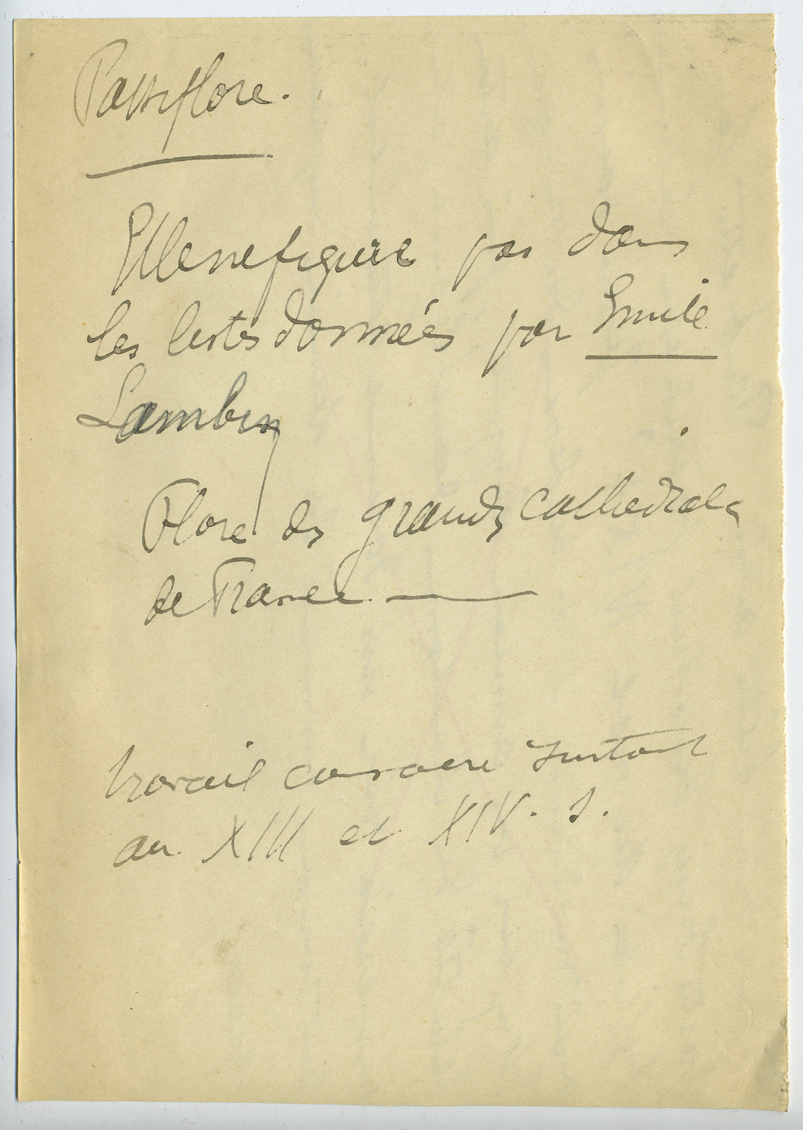 Passiflore.
Elle ne figure pas dans
les listes données par Emile
Lambin
Flore des grandes cathédrales
de France
travail consacré surtout
au XIII et XIV. s.